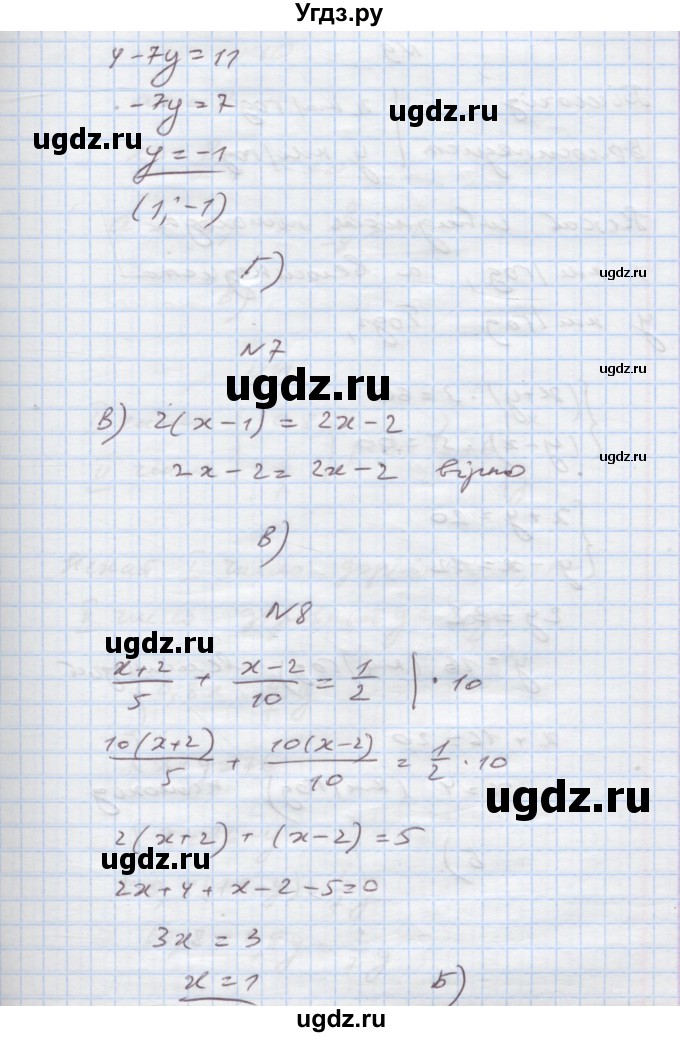 Угдз.ру
4 - 7y = 11
- 7y = 7
ugdz.ru
ugdz.ru
y = -1
ugdz.ru
(1; -1)
Г)
N7
ugdz.ru
В) 2(x - 1) = 2x - 2
2x - 2 = 2x - 2 вірно
ugdz.ru
В)
N8
ugdz.ru
x+2/5 + x-2/10 = 1/2 | · 10
10(x+2)/5 + 10(x-2)/10 = 1/2 · 10
ugdz.ru
2(x+2) + (x-2) = 5
ugdz.ru
2x + 4 + x - 2 - 5 = 0
3x = 3
x = 1 Б)
ugdz.ru